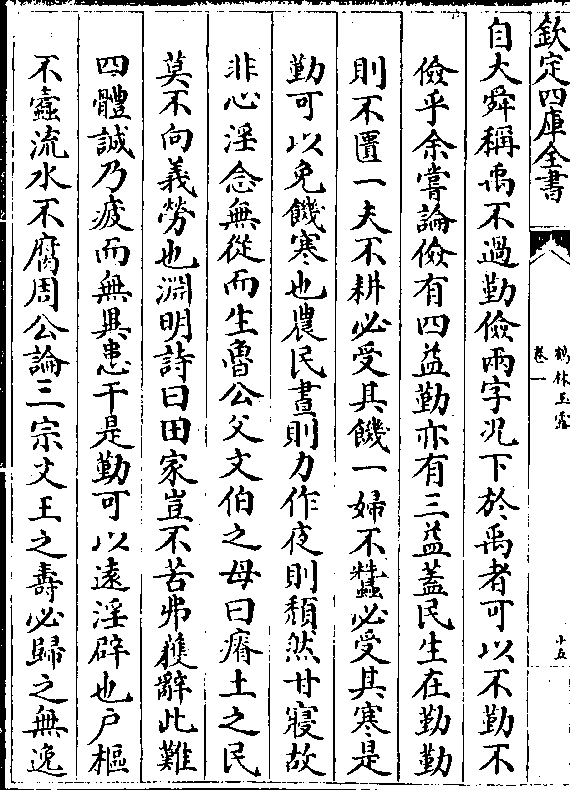 欽定四庫全書
鶴林玉露
卷一
十五
自大舜稱禹不過勤儉兩字况下於禹者可以不勤不
儉乎余嘗論儉有四益勤亦有三益蓋民生在勤勤
則不匱一夫不耕必受其饑一婦不蠶必受其寒是
勤可以免饑寒也農民晝則力作夜則頽然甘寢故
非心淫念無從而生魯公父文伯之母曰瘠土之民
莫不向義勞也淵明詩曰田家豈不苦弗獲辭此難
四體誠乃疲而無異患干是勤可以遠淫辟也户樞
不蠧流水不腐周公論三宗文王之夀必歸之無逸